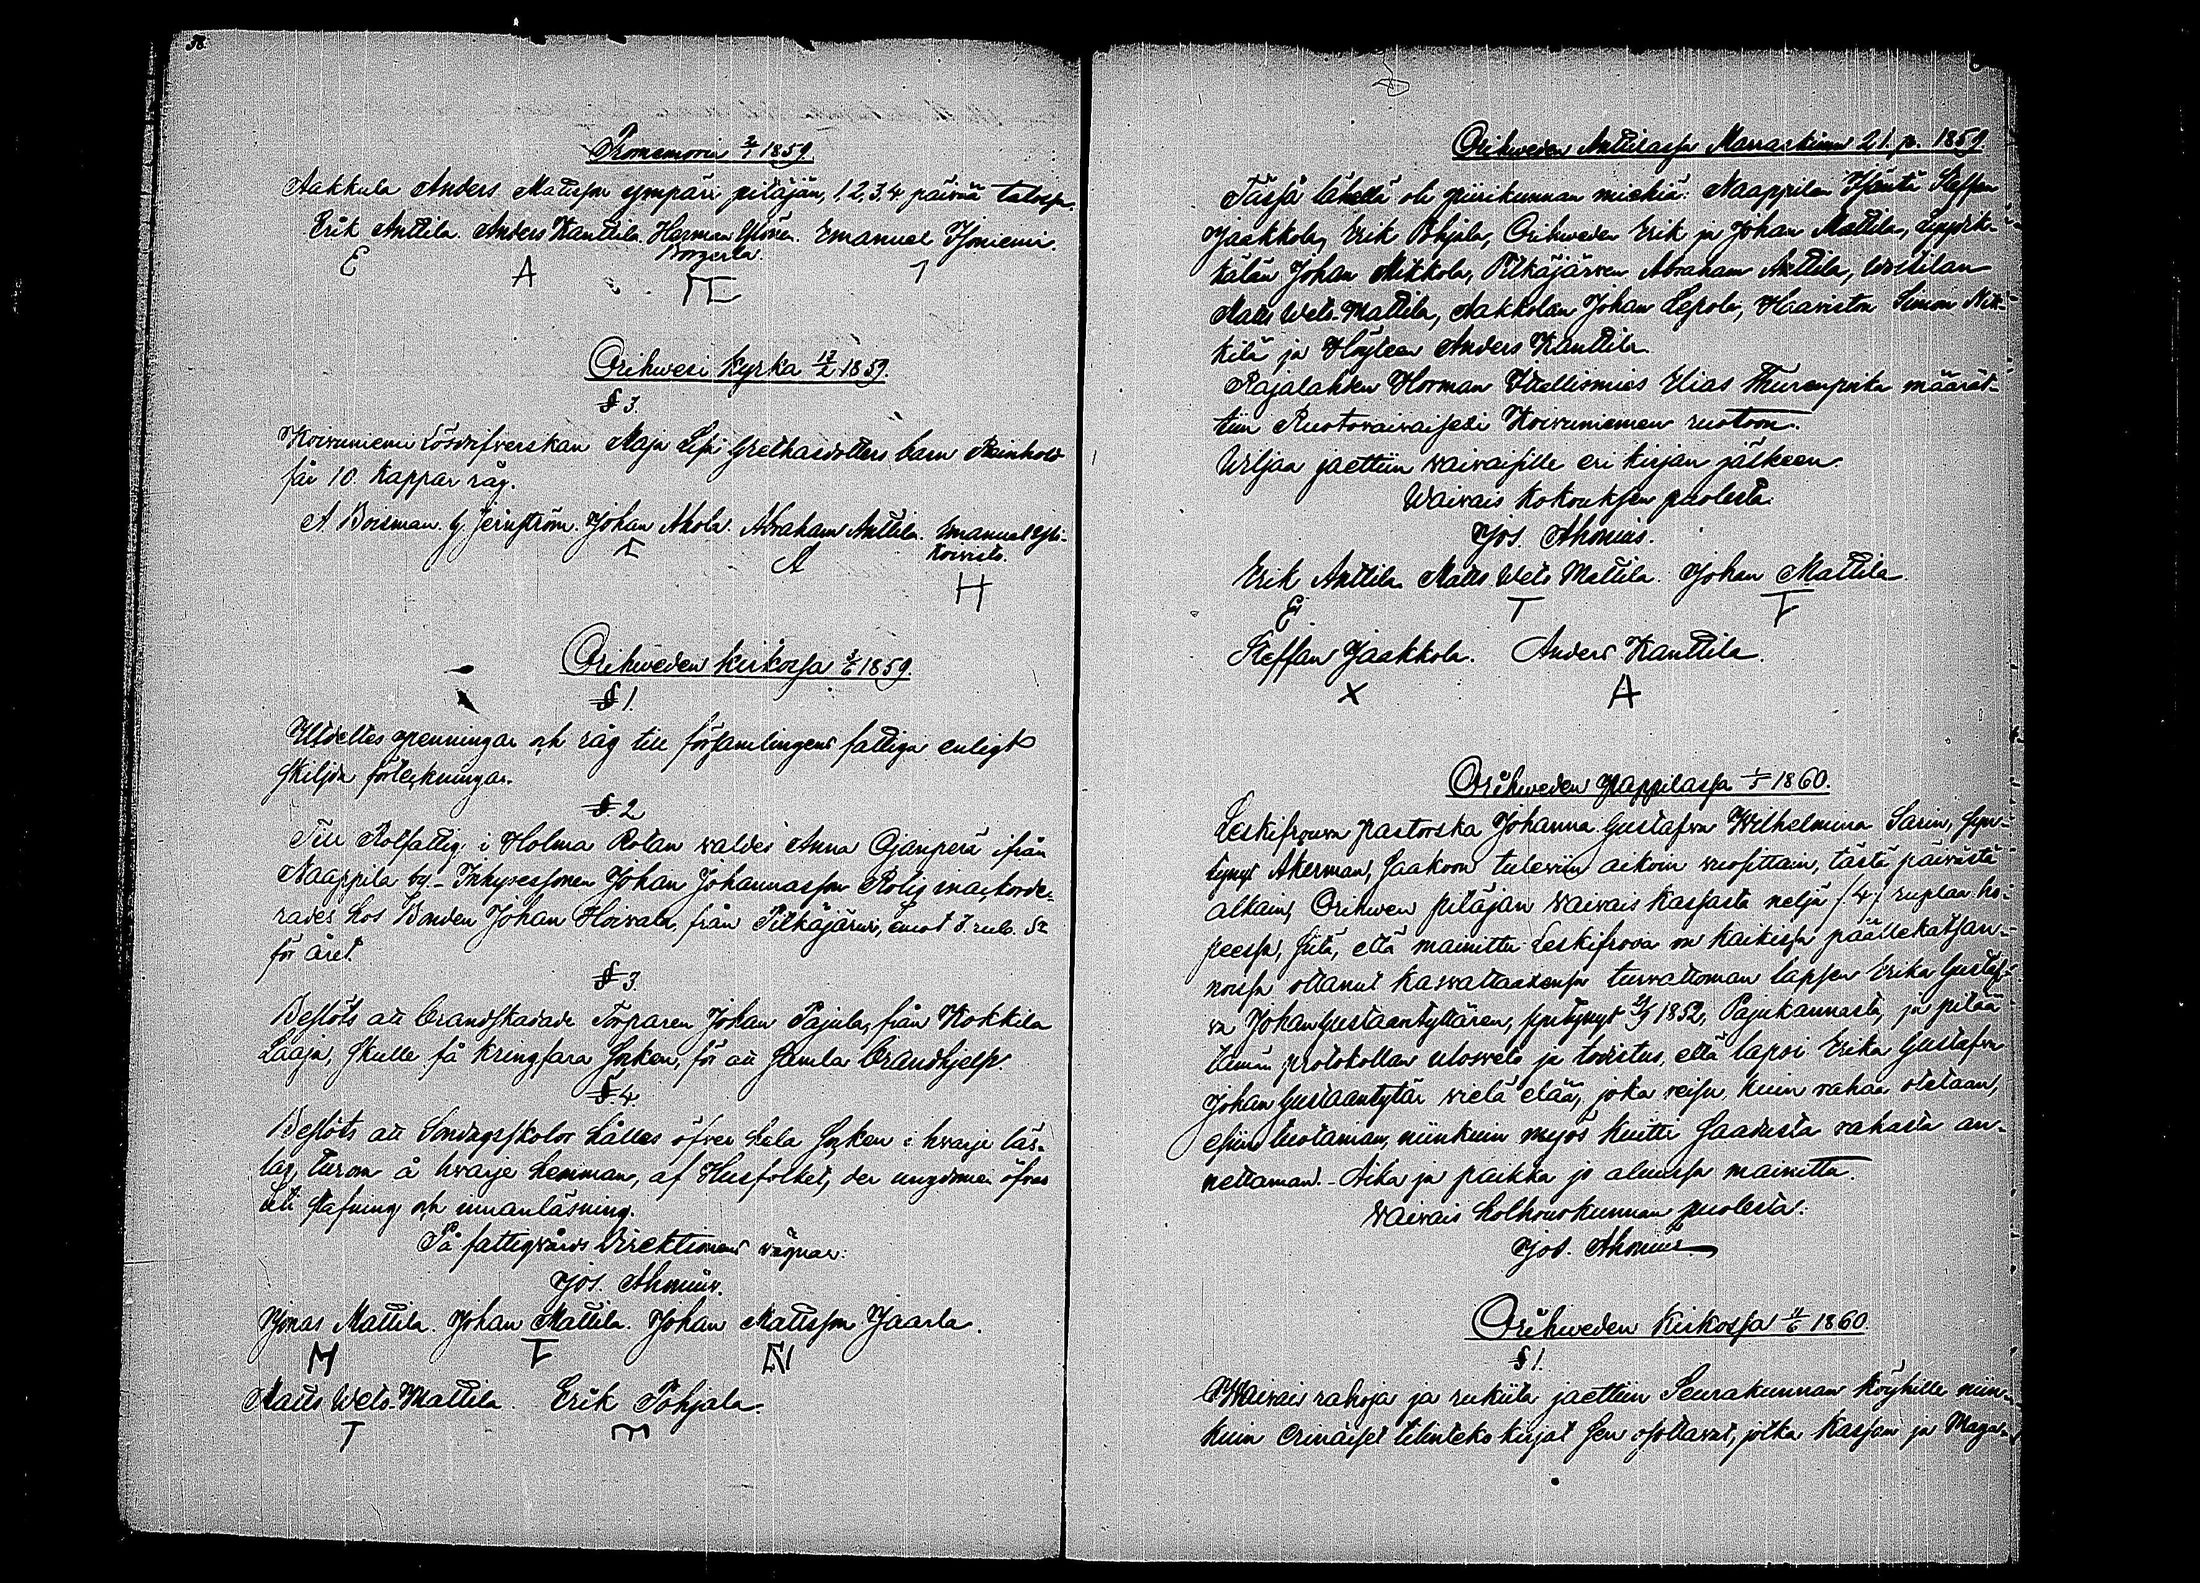 38.
Promemoria 2/1 1859.
Aakkula Anders Matsson ympäri pitäjän, 1, 2, 3, 4 päivää talossa.
Erik Anttila. Anders Kanttila. Herman Ylönen. Emanuel Isoniemi.
Borgerla.
E A
Orihwesi Kyrka 17/2 1859.
§ 3.
Koivuniemi Lösdrifverskan Maja Lisa Grethasdotters barn Reinhold
får 10. Kappar råg.
A Boisman. G Jernström. Johan Ahola. Abraham Anttila. Emanuel Yli-
Koivisto.
A H
Orihweden kirkossa 3/6 1859.
§ 1.
Utdeltes penningar och råg till församlingens fattiga enligt
skiljda förteckningar.
§. 2
Till Rotfattig i Holma Rotan valdes Anna Ojanperä ifrån
Naappila by. - Inhysessonen Johan Johannasson Rolig inackorde-
rades hos Bonden Johan Hoivala, från Pitkäjärvi, emot 3. rub. Sr
för året.
§ 3.
Beslöts att brandskadade Torparen Johan Pajula, från Kokkila
Laaja, skulle få kringfara Socken, för att samla brandhjelp.
§. 4.
Beslöts att Söndagsskolor hålles öfver hela Socken i hvarje läs-
lag, turom å hvarje hemman, af Husfolket, der ungdomen öfvas
uti stafning och innanläsning.
På fattigvårds Direktionens vägnar:
Jos. Ahonius.
Jonas Mattila. Johan Mattila. Johan Matsson Jaarla.
Matts Wets-Mattila. Erik Pohjala.
T
Orihweden Anttilassa Marraskuun 21. p. 1859
Tässä läsnä oli piirikunnan miehiä: Naappilan Isäntä Steffan
Jaakkola, Erik Pohjala, Orihweden Erik ja Johan Mattila,
Johan Mikkola, Pitkäjärven Abraham Anttila,
Matts Wets-Mattila, Aakkolan Johan Lepola, Haaviston Simon Mik-
kilä ja Höyteen Anders Kanttila.
Rajalahden Horman Itsellismies Elias Thurenpoika määrät-
tiin Ruotovaivaiseksi Koivuniemen ruotoon.
Wiljaa jaettiin vaivaisille eri kirjan jälkeen.
Waivais kokouksen puolesta.
Jos. Ahonius.
Erik Anttila Matts Wets Mattila. Johan Mattila.
E T
Steffan Jaakkola. Anders Kanttila.
X A
Orihweden Pappilassa 1/5 1860.
Leskifrouva pastorska Johanna Gustafva Wilhelmina Sarin, syn-
tynyt Åkerman, saakoon tuleviin aikoin vuosittain, tästä päivästä
alkain, Orihwen pitäjän vaivais kassasta neljä /4/ ruplaa ho-
peessa, siitä, että mainittu Leskifrova on kaikissa päällekatsan-
noissa ottanut kasvattaaksensa turvattoman lapsen Erika Gustaf-
va Johan Gustaantyttären, syntynyt 1852, Pajukannasta, ja pitää
tämän protokollan ulosveto ja todistus, että lapsi Erika Gustafva
Johan Gustaantytär vielä elää, joka reisu, kuin rahaa otetaan,
esiin tuotaman, niinkuin myös kuitti saadusta rahasta an-
nettaman. - Aika ja paikka jo alussa mainittu.
Waivais holhouskunnan puolesta:
Jos. Ahonius
Orihweden Kirkossa 11/6 1860.
§ 1.
Waivais rahoja ja rukiita jaettiin Seurakunnan köyhille niin-
kuin erinäiset tilinteko kirjat sen osottavat, jotka kassan ja Maga-